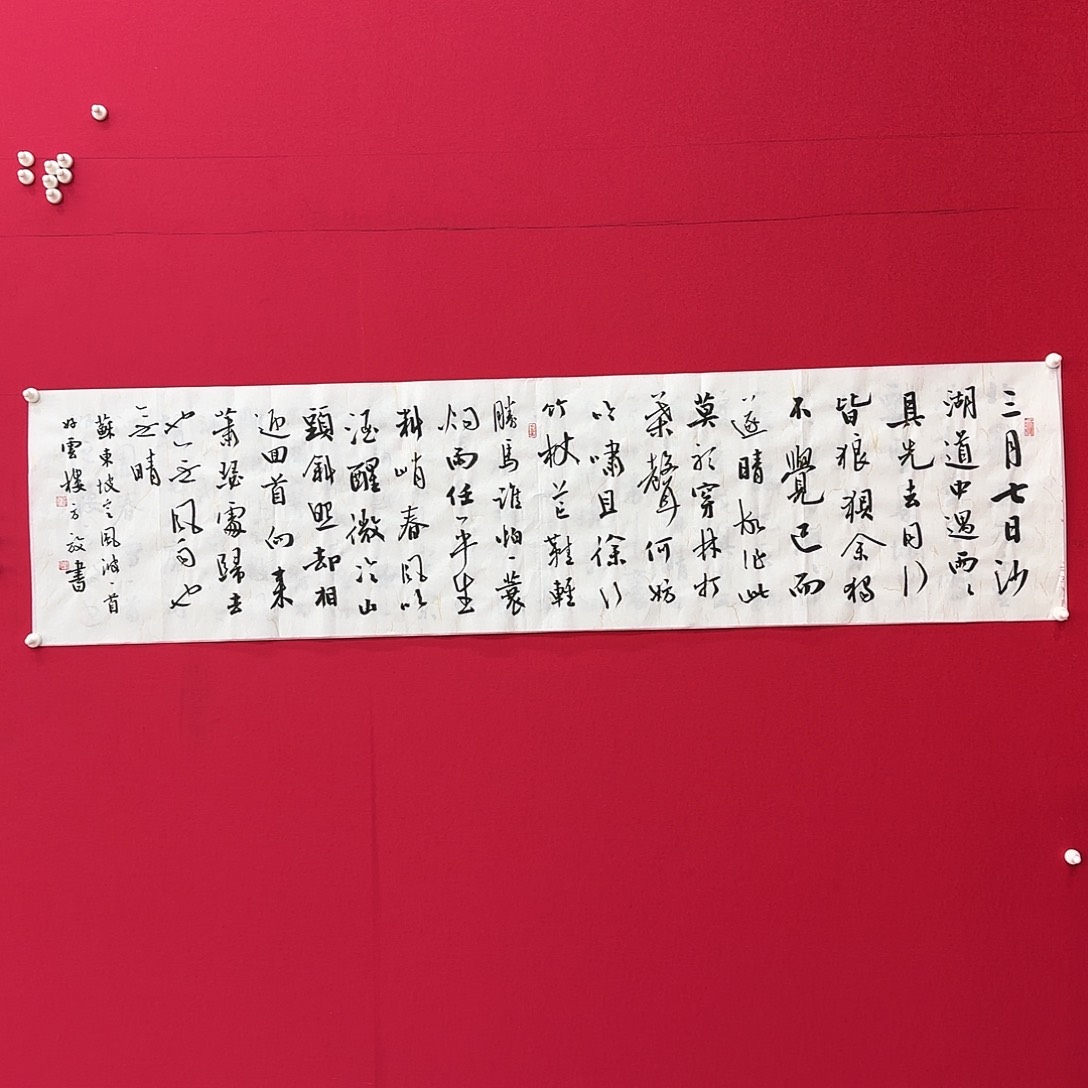 三月七日沙
湖道中遇雨雨
具先去同行
皆狼狽余獨
不覺已而
遂晴故作此
莫聽穿林打
葉聲何妨
吟嘯且徐行
竹杖芒鞋輕
勝馬誰怕一蓑
烟雨任平生
料峭春風吹
酒醒微冷山
頭斜照却相
迎回首向來
蕭瑟處歸去
也一無風雨也
無晴
蘇東坡定風波一首
好雲樓方放書